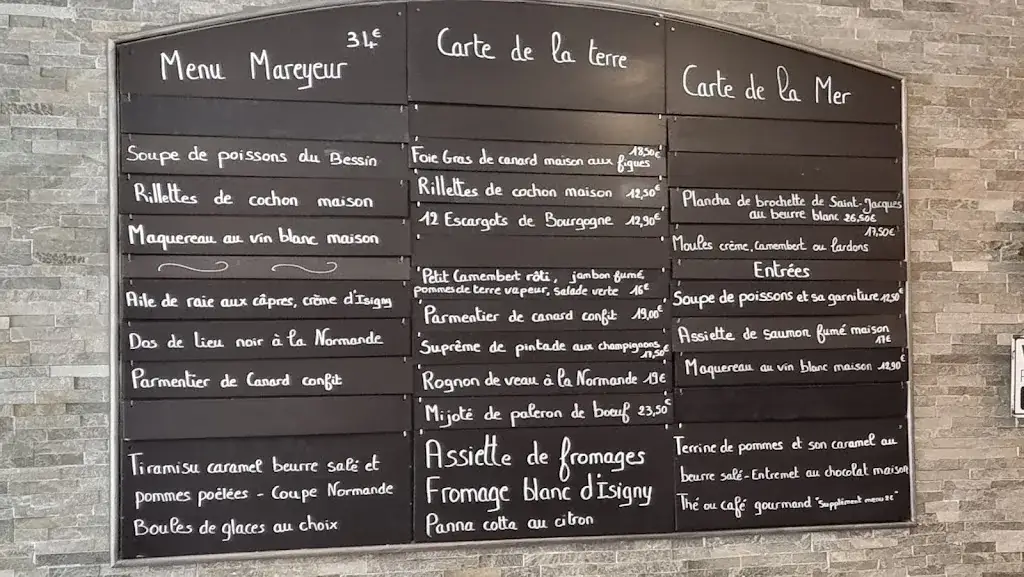 Menu Mareyeur
34€
Soupe de poissons du Bessin
Rillettes de cochon maison
Maquereau au vin blanc maison
Aile de raie aux câpres, crème d'Isigny
Dos de Lieu noir à la Normande
Parmentier de Canard confit
Tiramisu caramel beurre salé et
pommes poêlées - Coupe Normande
Boules de glaces au choix
Carte de la terre
Foie Gras de canard maison aux figues 18,50€
Rillettes de cochon maison 12,50€
12 Escargots de Bourgogne 12,90€
Petit Camembert rôti, jambon fumé,
pommes de terre vapeur, salade verte 16€
Parmentier de canard confit 19,00€
Suprême de pintade aux champignons
Rognon de veau à la Normande 19€
Mijoté de paleron de boeuf 23,50€
Assiette de fromages
Fromage blanc d'Isigny
Panna cotta au citron
Carte de la Mer
Plancha de brochette de Saint-Jacques
au beurre blanc 26,50€
17,50€
Moules crème, Camembert ou lardons
Entrées
Soupe de poissons et sa garniture 12,50€
Assiette de saumon fumé maison
17€
Maquereau au vin blanc maison 12,90€
Terrine de pommes et son caramel au
beurre salé - Entremet au chocolat maison
Thé ou café gourmand "Supplément menu 2€"